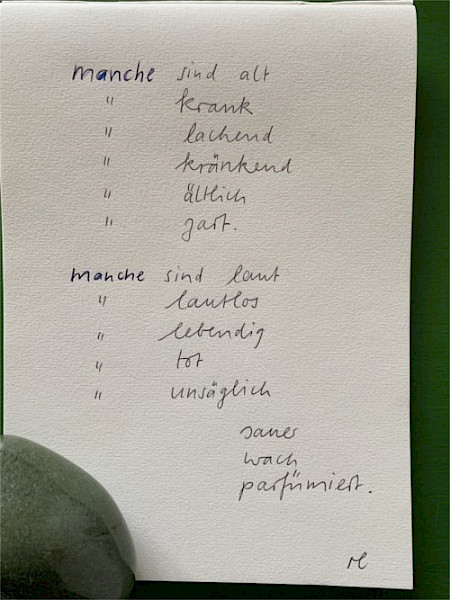 manche sind alt
" krank
" lachend
" kränkend
" ältlich
" zart.
manche sind laut
" lautlos
" lebendig
" tot
" unsäglich
sauer
wach
parfümiert.